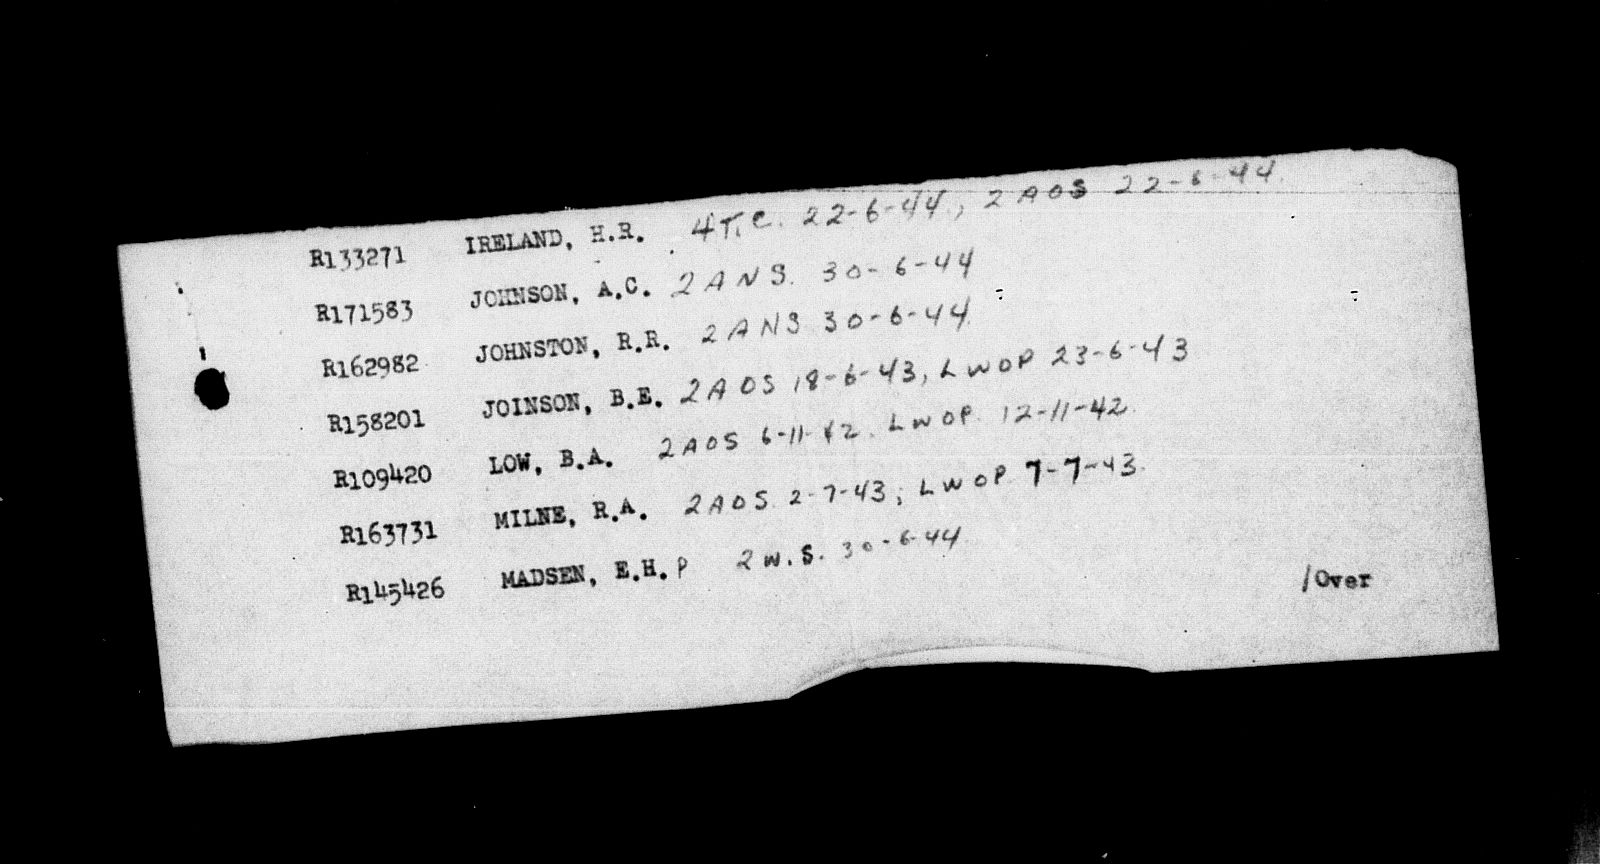 R133271 IRELAND, H.R. 4T.C. 22-6-44, 2 AOS 22-6-44.
R171583 JOHNSON, A.C. 2 ANS. 30-6-44
R162982 JOHNSTON, R.R. 2 ANS 30-6-44.
R158201 JOINSON, B.E. 2AOS 18-6-43, LWOP 23-6-43
R109420 LOW, B.A. 2AOS 6-11-42. LWOP. 12-11-42.
R163731 MILNE, R.A. 2AOS. 2-7-43; LWOP. 7-7-43.
R145426 MADSEN, E.H.P 2 W.S. 30-6-44
/Over